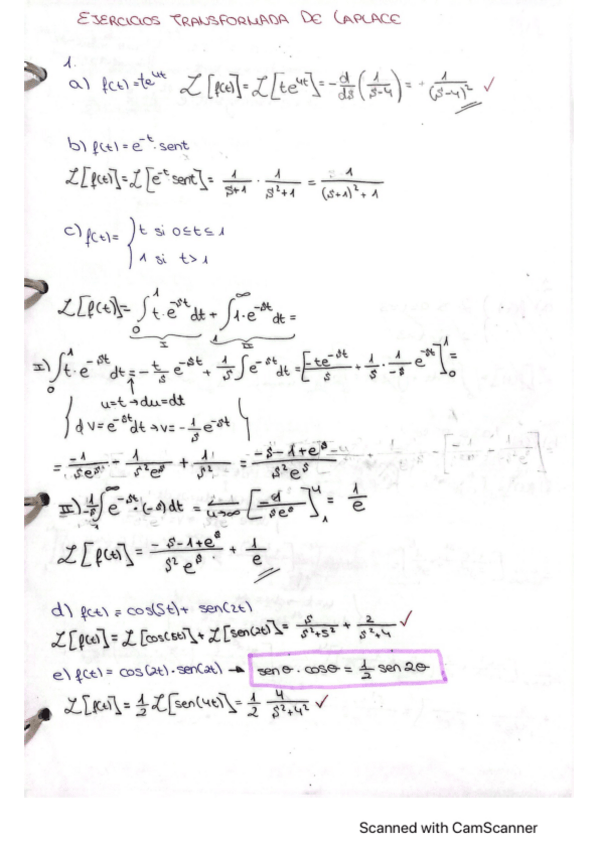 EJERCICIOS TRANSFORMADA DE LAPLACE
1.
a) f(t)=te^{4t} ℒ[f(t)]=ℒ[te^{4t}]=-d/ds(1/(s-4))=+1/(s-4)^2 ✓
b) f(t)=e^{-t}·sent
ℒ[f(t)]=ℒ[e^{-t}sent]=1/(s+1)·1/(s^2+1)=1/((s+1)^2+1)
c) f(t)={t si 0≤t≤1
1 si t>1
ℒ[f(t)]=∫_0^1 t·e^{-st}dt+∫_1^∞ 1·e^{-st}dt=
I II
I) ∫_0^1 t·e^{-st}dt=-t/s e^{-st}+1/s∫e^{-st}dt=[-te^{-st}/s+1/s·-1/s e^{-st}]_0^1=
{u=t→du=dt
dv=e^{-st}dt→v=-1/s e^{-st}}
=-1/(se^s)-1/(s^2e^s)+1/s^2=(-s-1+e^s)/(s^2e^s)
II) -1/s∫_1^∞ e^{-st}·(-s)dt= [-1/(se^s)]_1^u=1/e
ℒ[f(t)]=(-s-1+e^s)/(s^2e^s)+1/e
d) f(t)=cos(5t)+sen(2t)
ℒ[f(t)]=ℒ[cos(5t)]+ℒ[sen(2t)]=s/(s^2+5^2)+2/(s^2+4) ✓
e) f(t)=cos(2t)·sen(2t) → senθ·cosθ=1/2 sen2θ
ℒ[f(t)]=1/2 ℒ[sen(4t)]=1/2 4/(s^2+4^2) ✓
Scanned with CamScanner